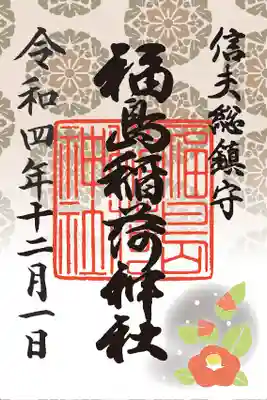 信夫総鎮守
福島稲荷神社
福島
稲荷
神社
令和四年十二月一日